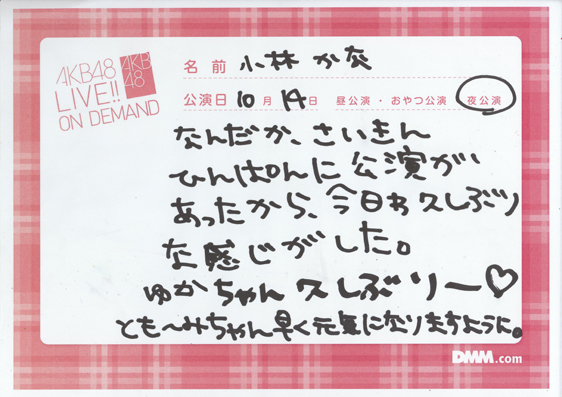 AKB48
LIVE!!
ON DEMAND
AKB
48
名前 小林 かな
公演日 10月 14日 昼公演・おやつ公演 夜公演
なんだか、さいきん
ひんぱんに公演が
あったから、今日わ久しぶり
な感じがした。
ゆかちゃん久しぶりー♡
とも〜みちゃん早く元気になりますように。
DMM.com